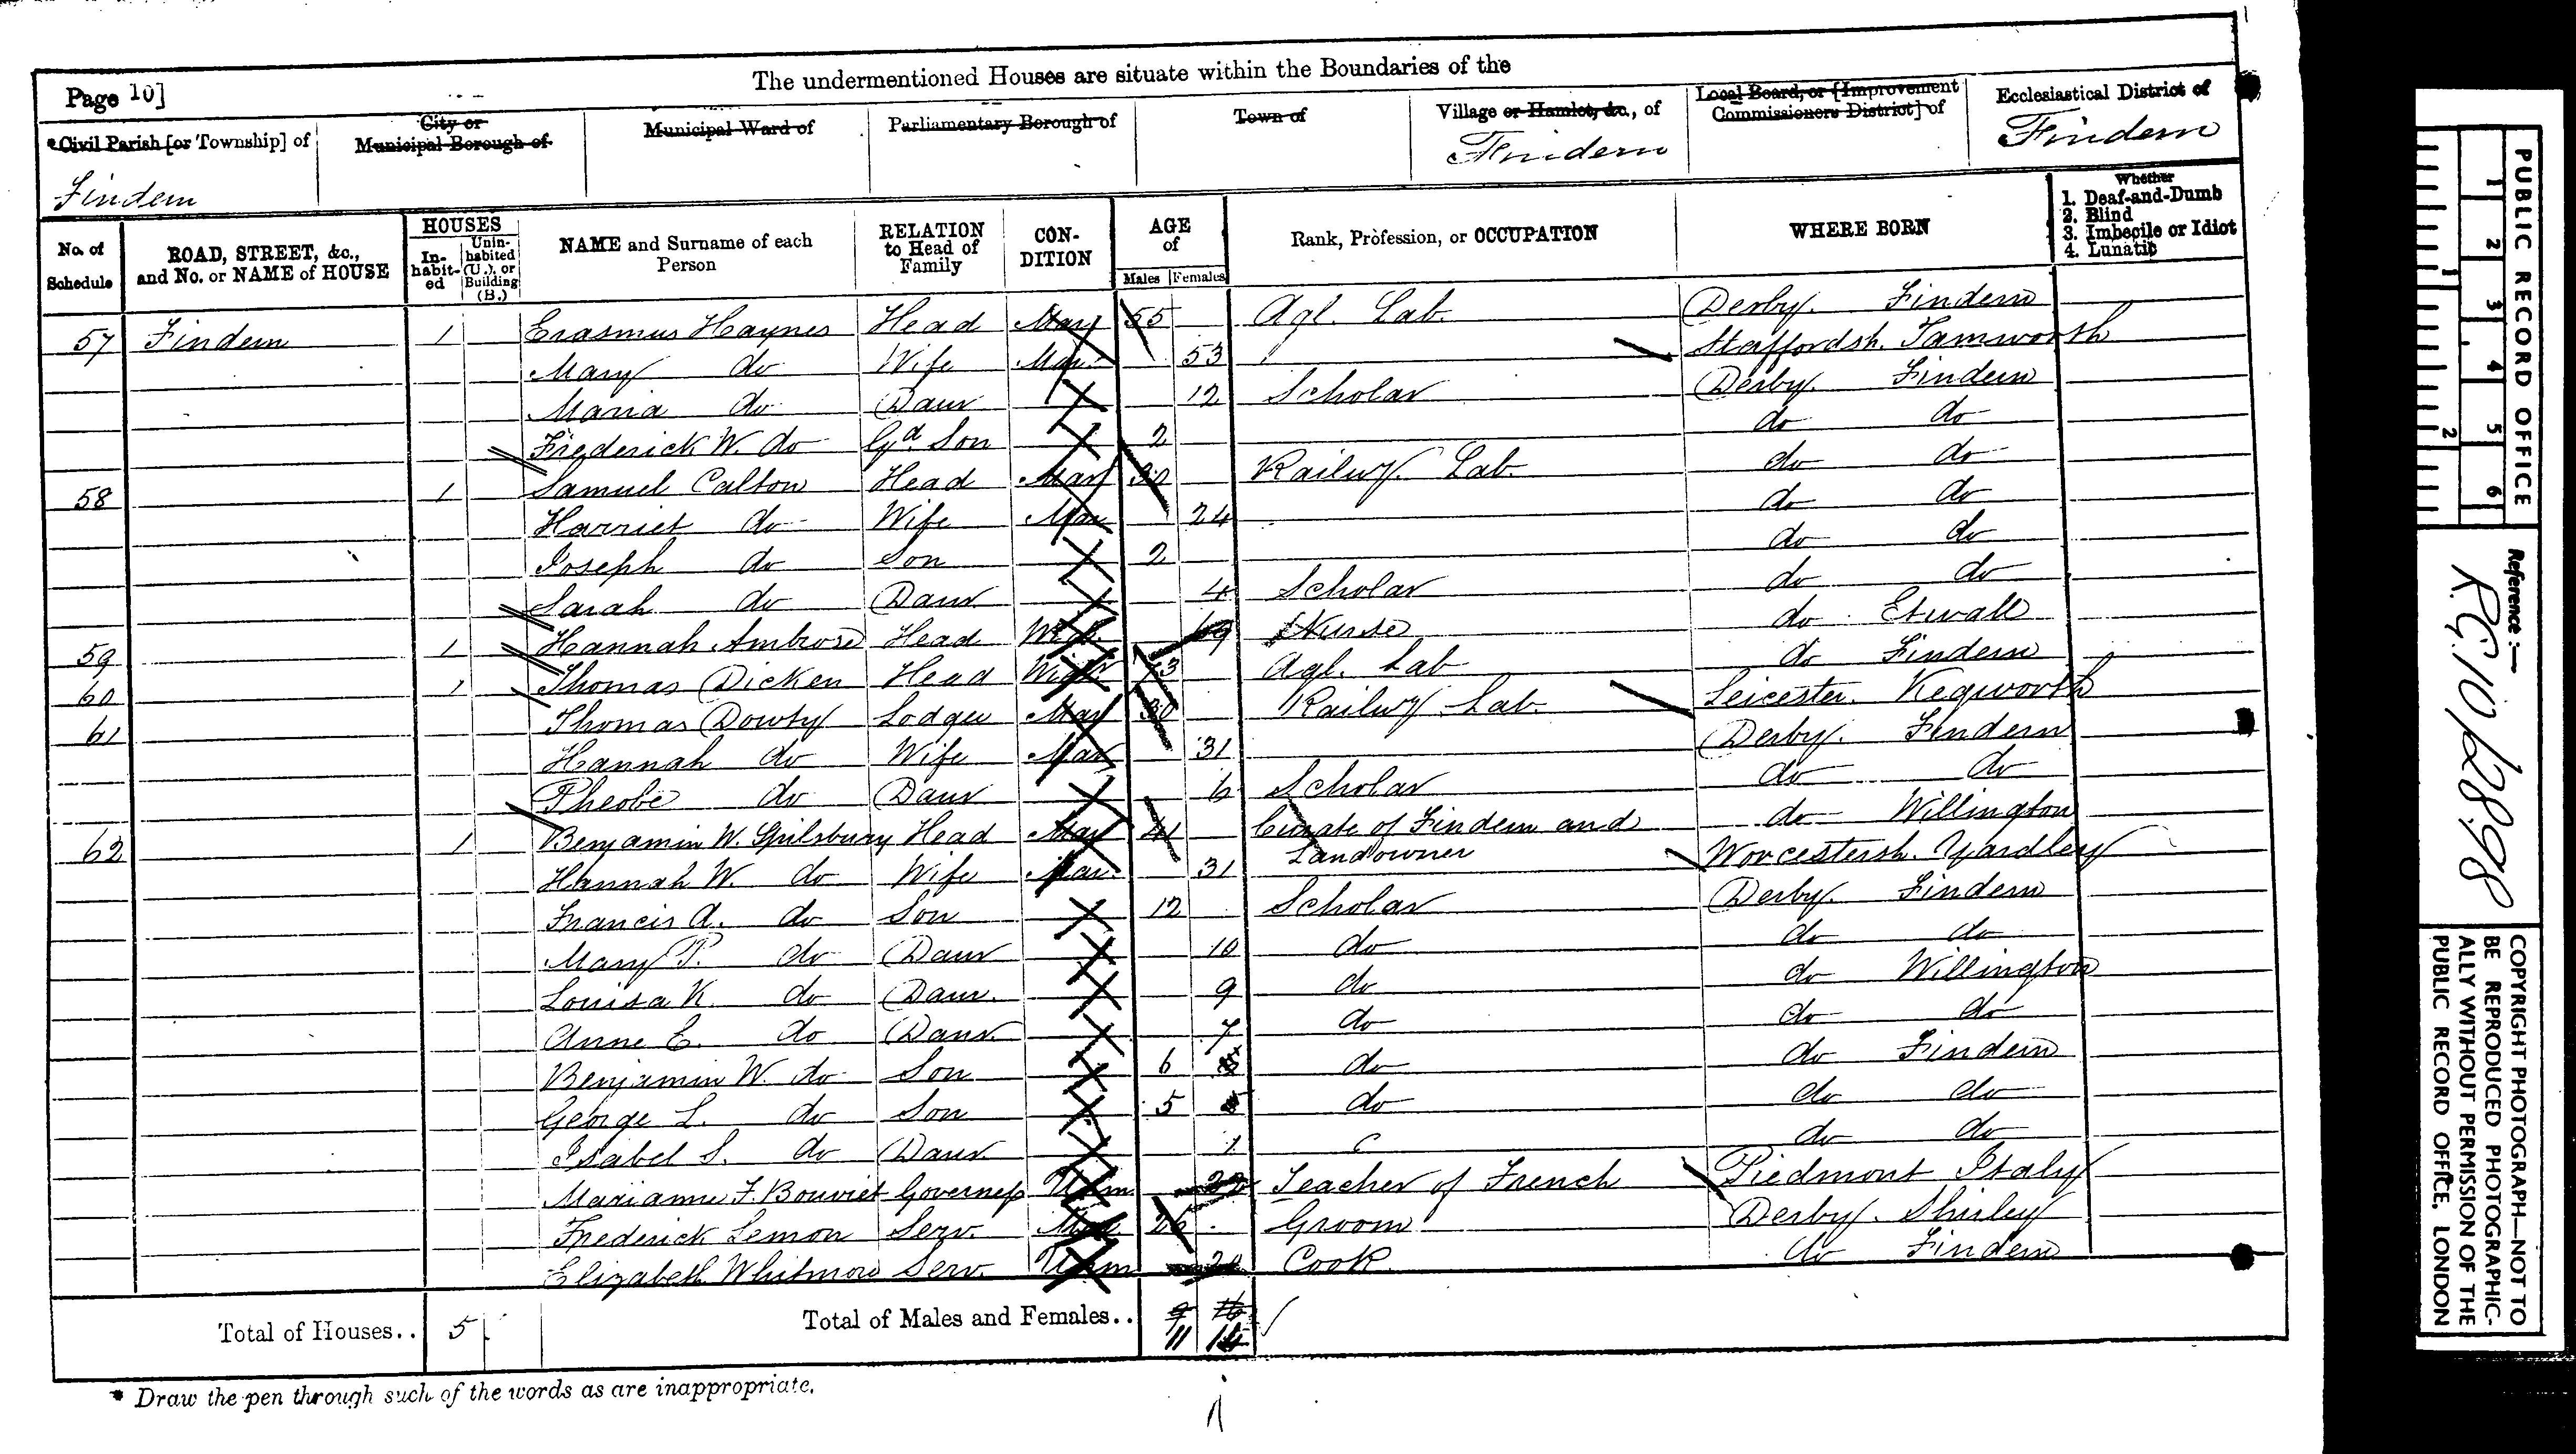 The undermentioned Houses are situate within the Boundaries of the
Page 10]
Civil Parish [or Township] of Findern
City or Municipal Borough of
Municipal Ward of
Parliamentary Borough of
Town of
Village or Hamlet, &c., of Findern
Local Board, or [Improvement Commissioners District] of
Ecclesiastical District of Findern
No. of Schedule
ROAD, STREET, &c., and No. or NAME of HOUSE
HOUSES
In-habit-ed
Unin-habited (U.), or Building (B.)
NAME and Surname of each Person
RELATION to Head of Family
CON-DITION
AGE of
Males
Females
Rank, Profession, or OCCUPATION
WHERE BORN
Whether
1. Deaf-and-Dumb
2. Blind
3. Imbecile or Idiot
4. Lunatic
57 Findern 1 Erasmus Haynes Head Mar 55 Agl. Lab. Derby. Findern
Mary do Wife Mar. 53 Staffordsh. Tamworth
Maria do Daur 12 Scholar Derby. Findern
Frederick W. do Gd. Son 2 do do
58 1 Samuel Calton Head Mar 30 Railwy. Lab. do do
Harriet do Wife Mar 24 do do
Joseph do Son 2 do do
Sarah do Daur. 4 Scholar do do
59 1 Hannah Ambrose Head Wid. 69 Nurse do Etwall
60 1 Thomas Dicken Head Widr 73 Agl. Lab do Findern
61 Thomas Dowty Lodger Mar 30 Railwy Lab. Leicester. Kegworth
Hannah do Wife Mar 31 Derby. Findern
Pheobe do Daur 6 Scholar do do
62 1 Benjamin W. Spilsbury Head Mar 41 Curate of Findern and Landowner do Willington
Hannah W. do Wife Mar. 31 Worcestersh. Yardley
Francis A. do Son 12 Scholar Derby. Findern
Mary P. do Daur 10 do do do
Louisa K. do Daur. 9 do do Willington
Anne E. do Daur. 7 do do do
Benjamin W. do Son 6 do do Findern
George L. do Son 5 do do do
Isabel S. do Daur. 1 do do
Marianne F. Bouviet Governess Unm Teacher of French Piedmont Italy
Frederick Lemon Serv. Mar 26 Groom Derby. Shirley
Elizabeth Whitmore Serv. Unm Cook. do Findern
Total of Houses.. 5
Total of Males and Females.. 9 16
11 14
* Draw the pen through such of the words as are inappropriate.
PUBLIC RECORD OFFICE
1 2 3 4 5 6
1 2
Reference:—
R.G. 10/2898
COPYRIGHT PHOTOGRAPH—NOT TO
BE REPRODUCED PHOTOGRAPHIC-
ALLY WITHOUT PERMISSION OF THE
PUBLIC RECORD OFFICE, LONDON